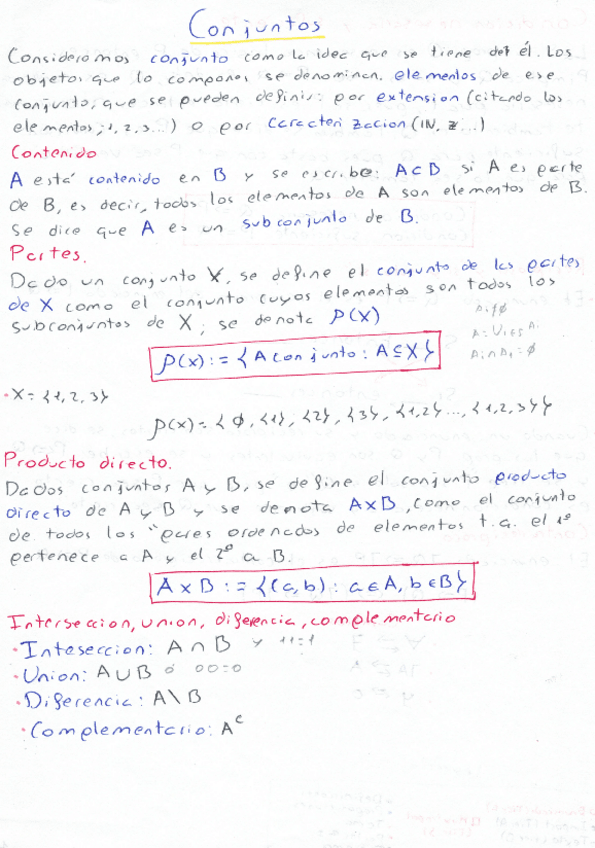 Conjuntos
Consideramos conjunto como la idea que se tiene del él. Los
objetos que lo componen se denominan elementos de ese
conjunto, que se pueden definir: por extension (citando los
elementos; 1, 2, 3...) o por caracterizacion (ℕ, ℤ...)
Contenido
A está contenido en B y se escribe: A⊂B si A es parte
de B, es decir, todos los elementos de A son elementos de B.
Se dice que A es un subconjunto de B.
Partes.
Dado un conjunto X, se define el conjunto de las partes
de X como el conjunto cuyos elementos son todos los
subconjuntos de X; se denota P(X)
P(X) := {A conjunto : A⊆X}
• X = {1, 2, 3}
P(X) = {∅, {1}, {2}, {3}, {1,2} ..., {1,2,3}}
Producto directo.
Dados conjuntos A y B, se define el conjunto producto
directo de A y B y se denota AxB, como el conjunto
de todos los "pares ordenados de elementos t.q. el 1º
pertenece a A y el 2º a B.
A x B := {(a,b) : a∈A, b∈B}
Interseccion, union, diferencia, complementario
• Inteseccion: A ∩ B y 11=1
• Union: A∪B ó 00=0
• Diferencia: A\B
• Complementario: Aᶜ